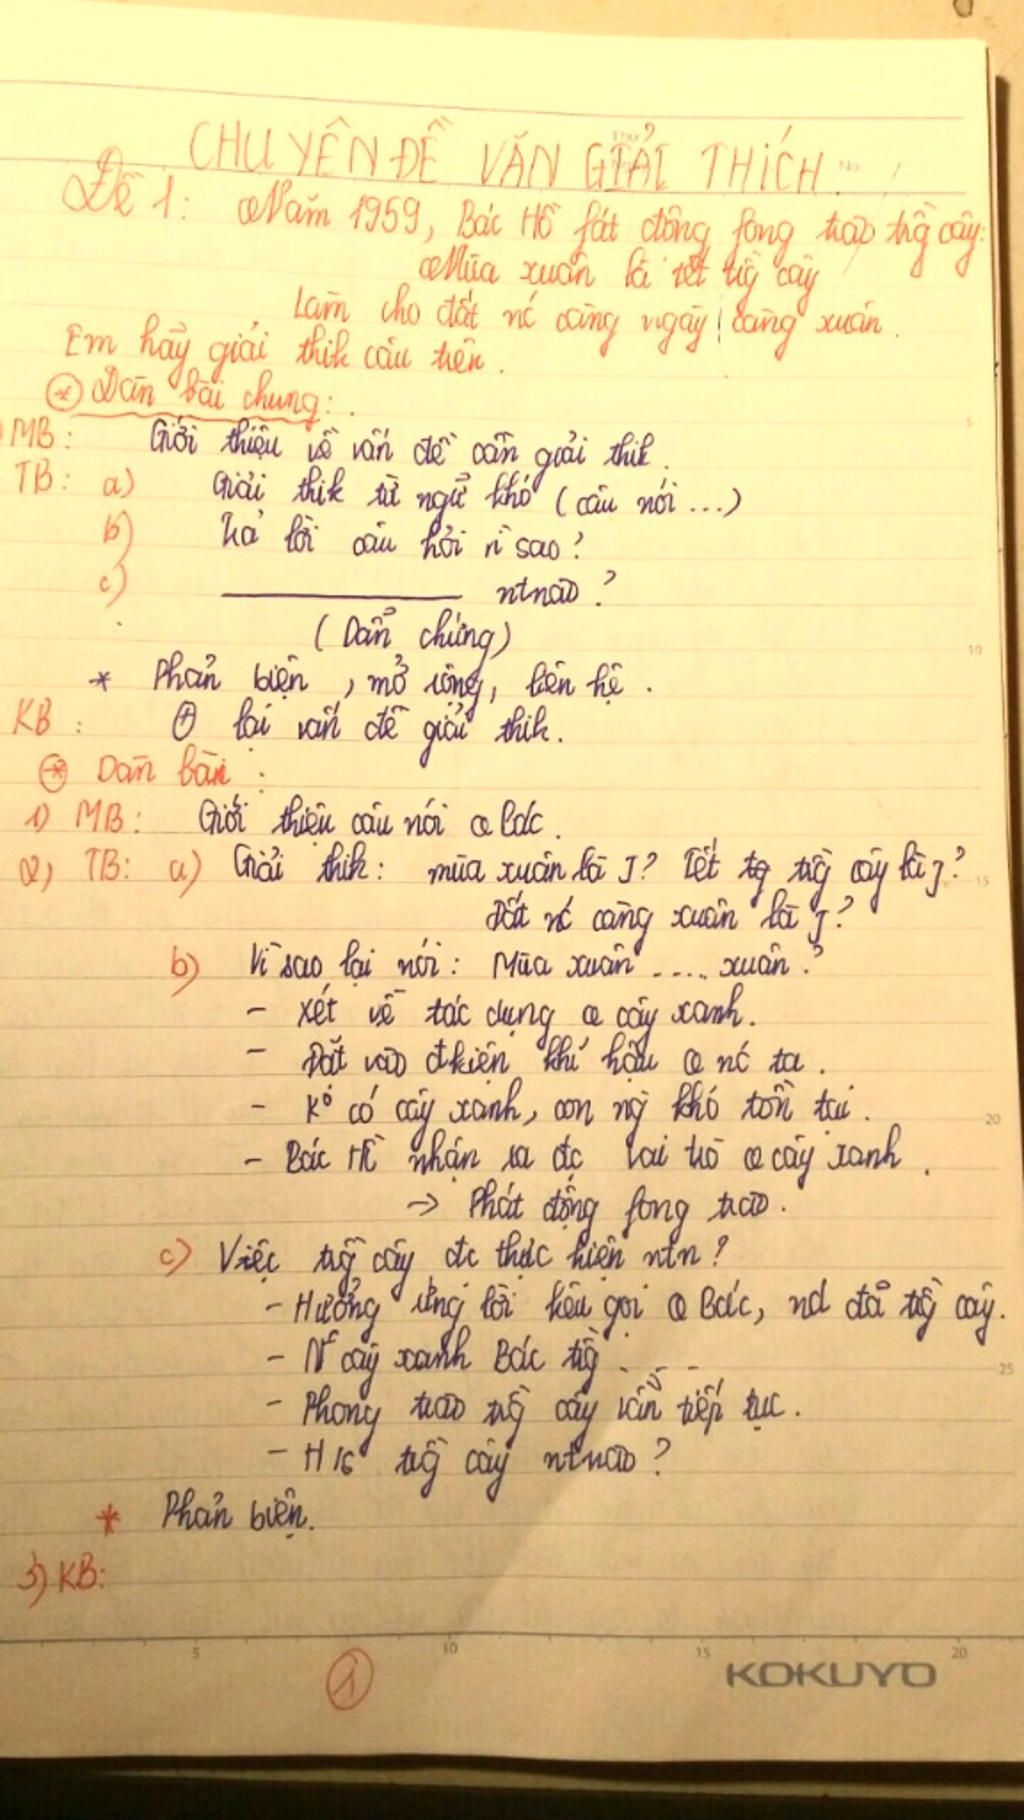 CHUYÊN ĐỀ VĂN GIẢI THÍCH
No
Đề 1: Năm 1959, Bác Hồ fát động fong trào trồg cây:
Mùa xuân là tết trồg cây
Làm cho đất nc càng ngày càng xuân.
Em hãy giải thik câu trên.
* Dàn bài chung:
MB: Giới thiệu về vấn đề cần giải thik.
TB: a) Giải thik từ ngữ khó (câu nói ...)
b) Trả lời câu hỏi vì sao?
c) ntnào?
(Dẫn chứng)
* Phản biện, mở rộng, liên hệ.
KB: lại vấn đề giải thik.
* Dàn bài:
1) MB: Giới thiệu câu nói Bác.
2) TB: a) Giải thik: mùa xuân là J? Tết trồg cây là J?
Đất nc càng xuân là J?
b) Vì sao lại nói: Mùa xuân .... xuân?
- Xét về tác dụng cây xanh.
- Đặt vào đkiện khí hậu nc ta.
- Ko có cây xanh, con ng khó tồn tại.
- Bác Hồ nhận ra đc vai trò cây xanh.
→ Phát động fong trào.
c) Việc trồg cây đc thực hiện ntn?
- Hưởng ứng lời kêu gọi Bác, nd đã trồg cây.
- cây xanh Bác trồg . - -
- Phong trào trồg cây vẫn tiếp tục.
- trồg cây ntnào?
* Phản biện.
3) KB:
5 10 15 20
1
KOKUYO